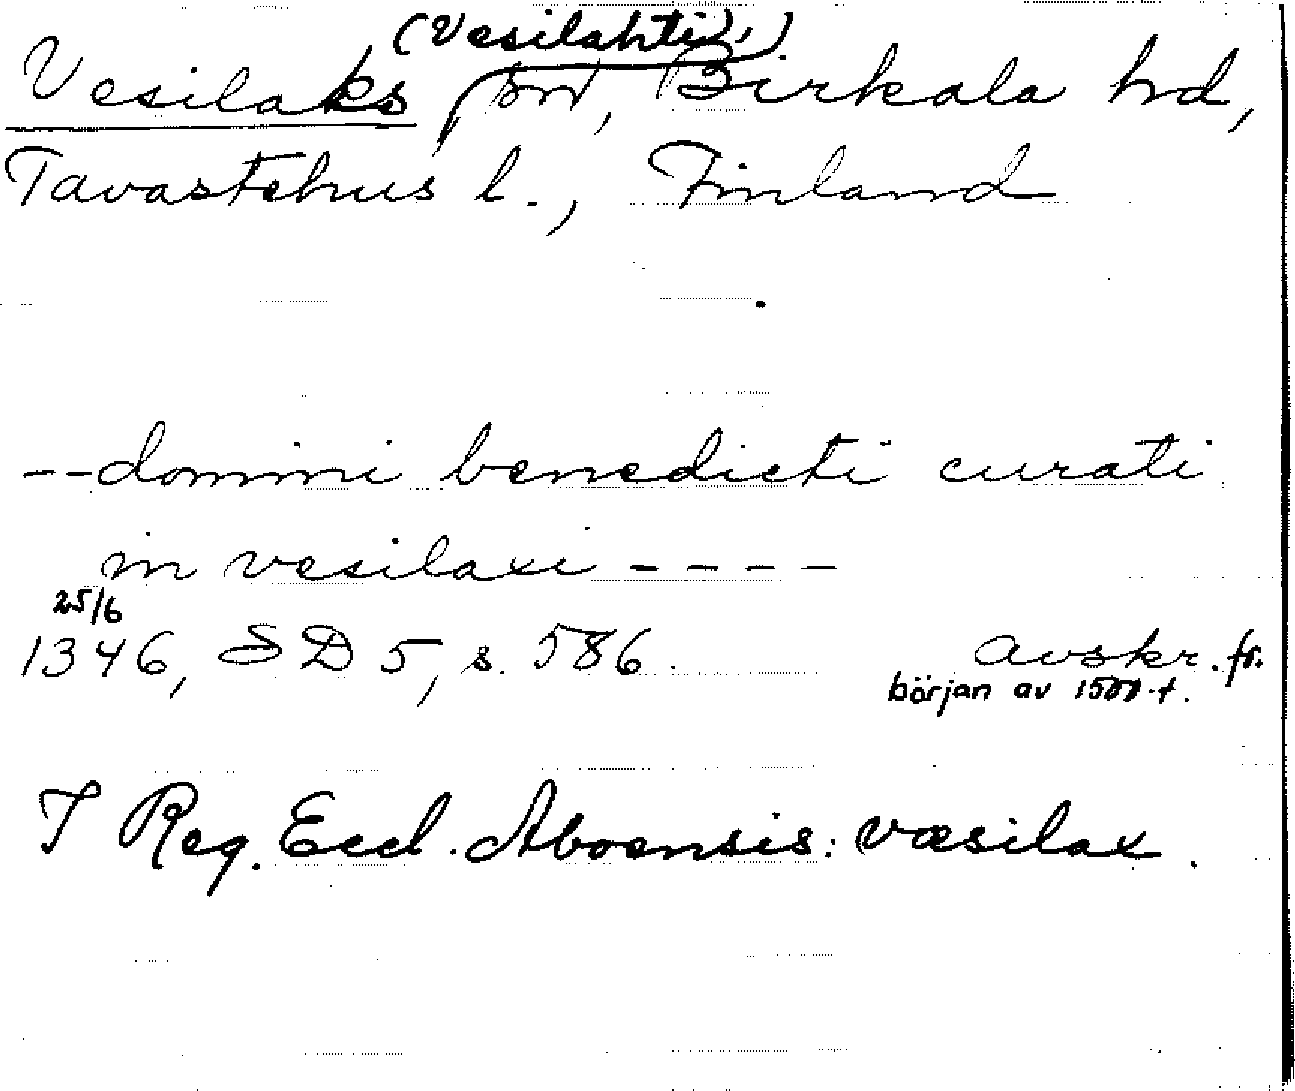 (Vesilahti,)
Vesilaks sn, Birkala hd,
Tavastehus l., Finland
--domini benedicti curati
in vesilaxi ----
25/6
1346, SD 5, s. 586. avskr. fr.
början av 1500-t.
I Reg. Eccl. Aboensis: væsilax.